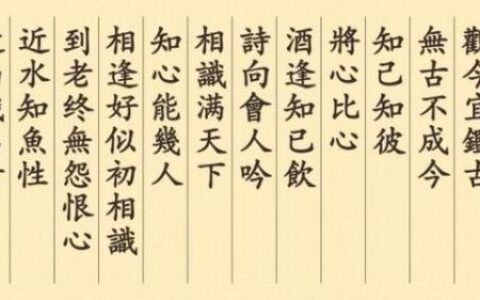 觀今宜鑑古
無古不成今
知己知彼
將心比心
酒逢知己飲
詩向會人吟
相識满天下
知心能幾人
相逢好似初相識
到老终無怨恨心
近水知魚性